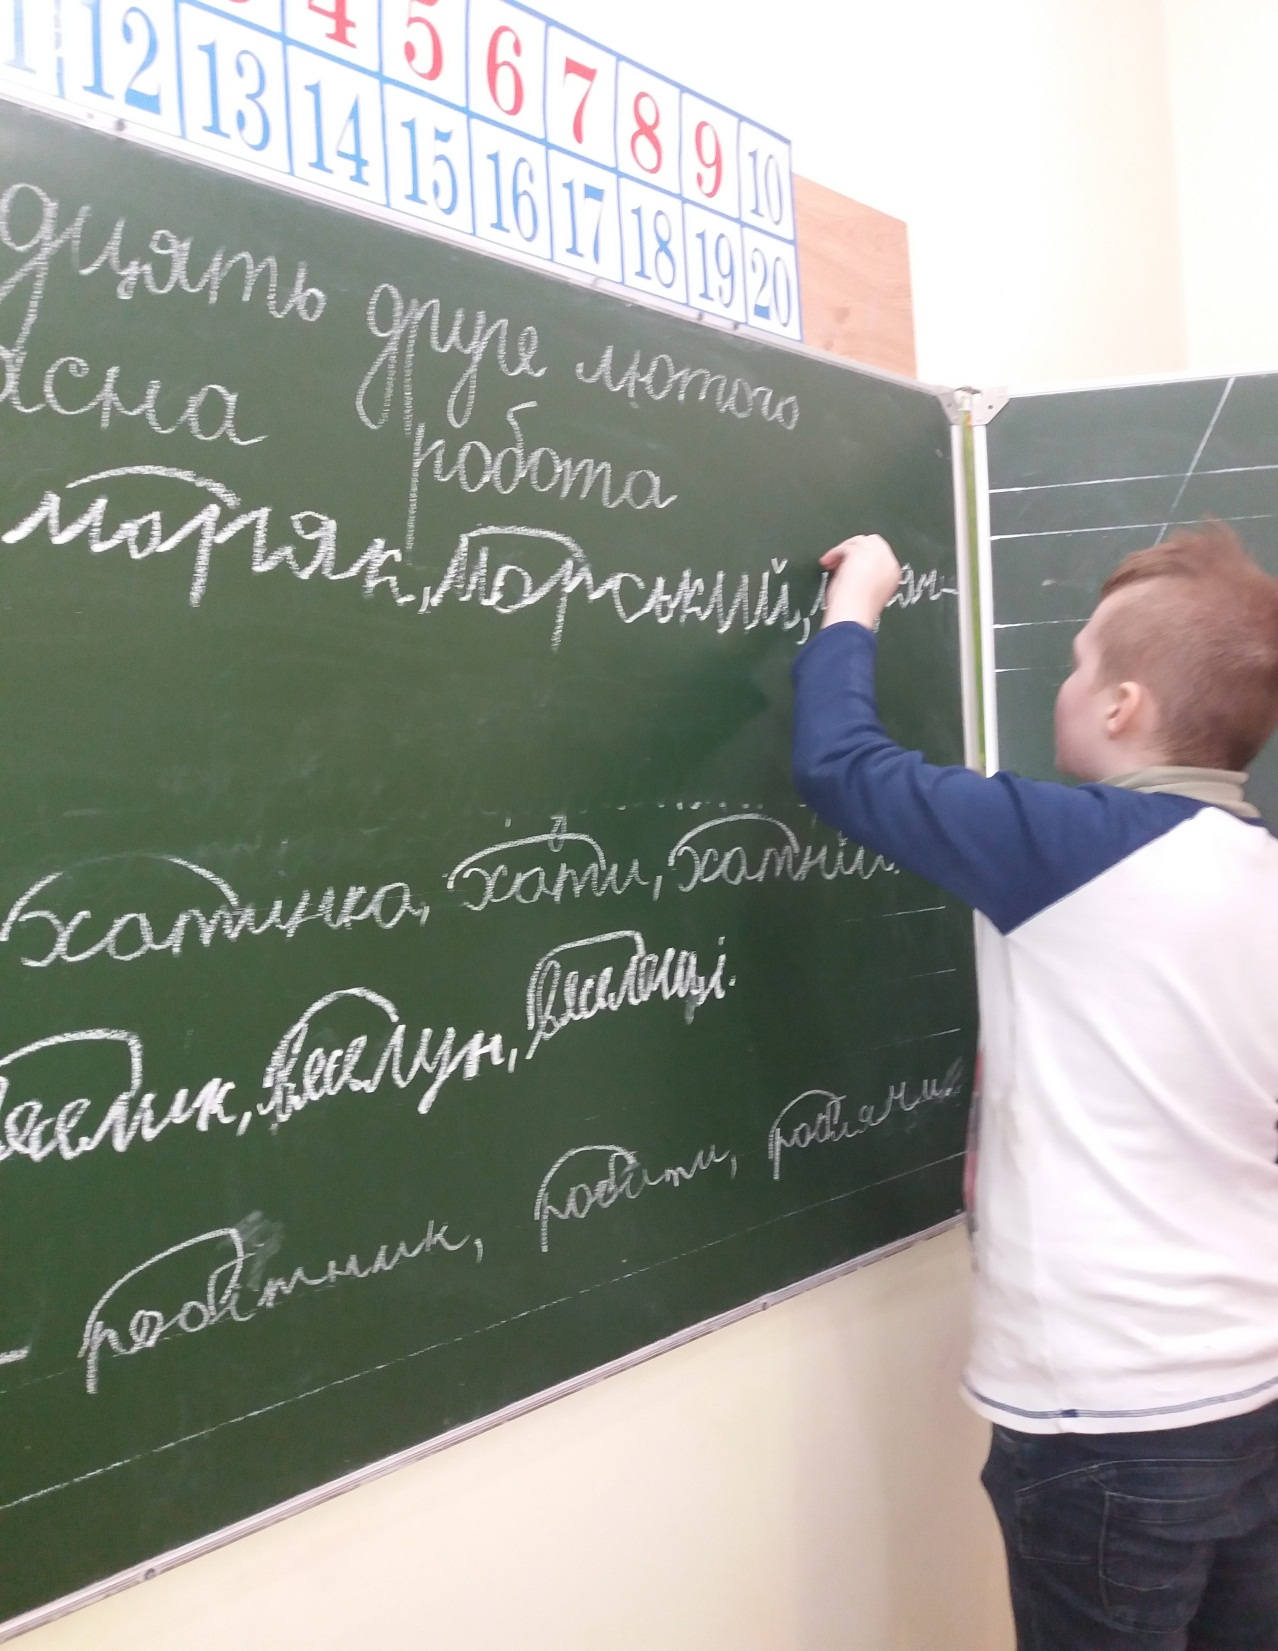 4 5 6 7 8 9 10
12 13 14 15 16 17 18 19 20
дцять друге лютого
асна робота
моряк, морський,
хатинка, хати, хатній.
веселун, веселощі.
- робітник, робити,